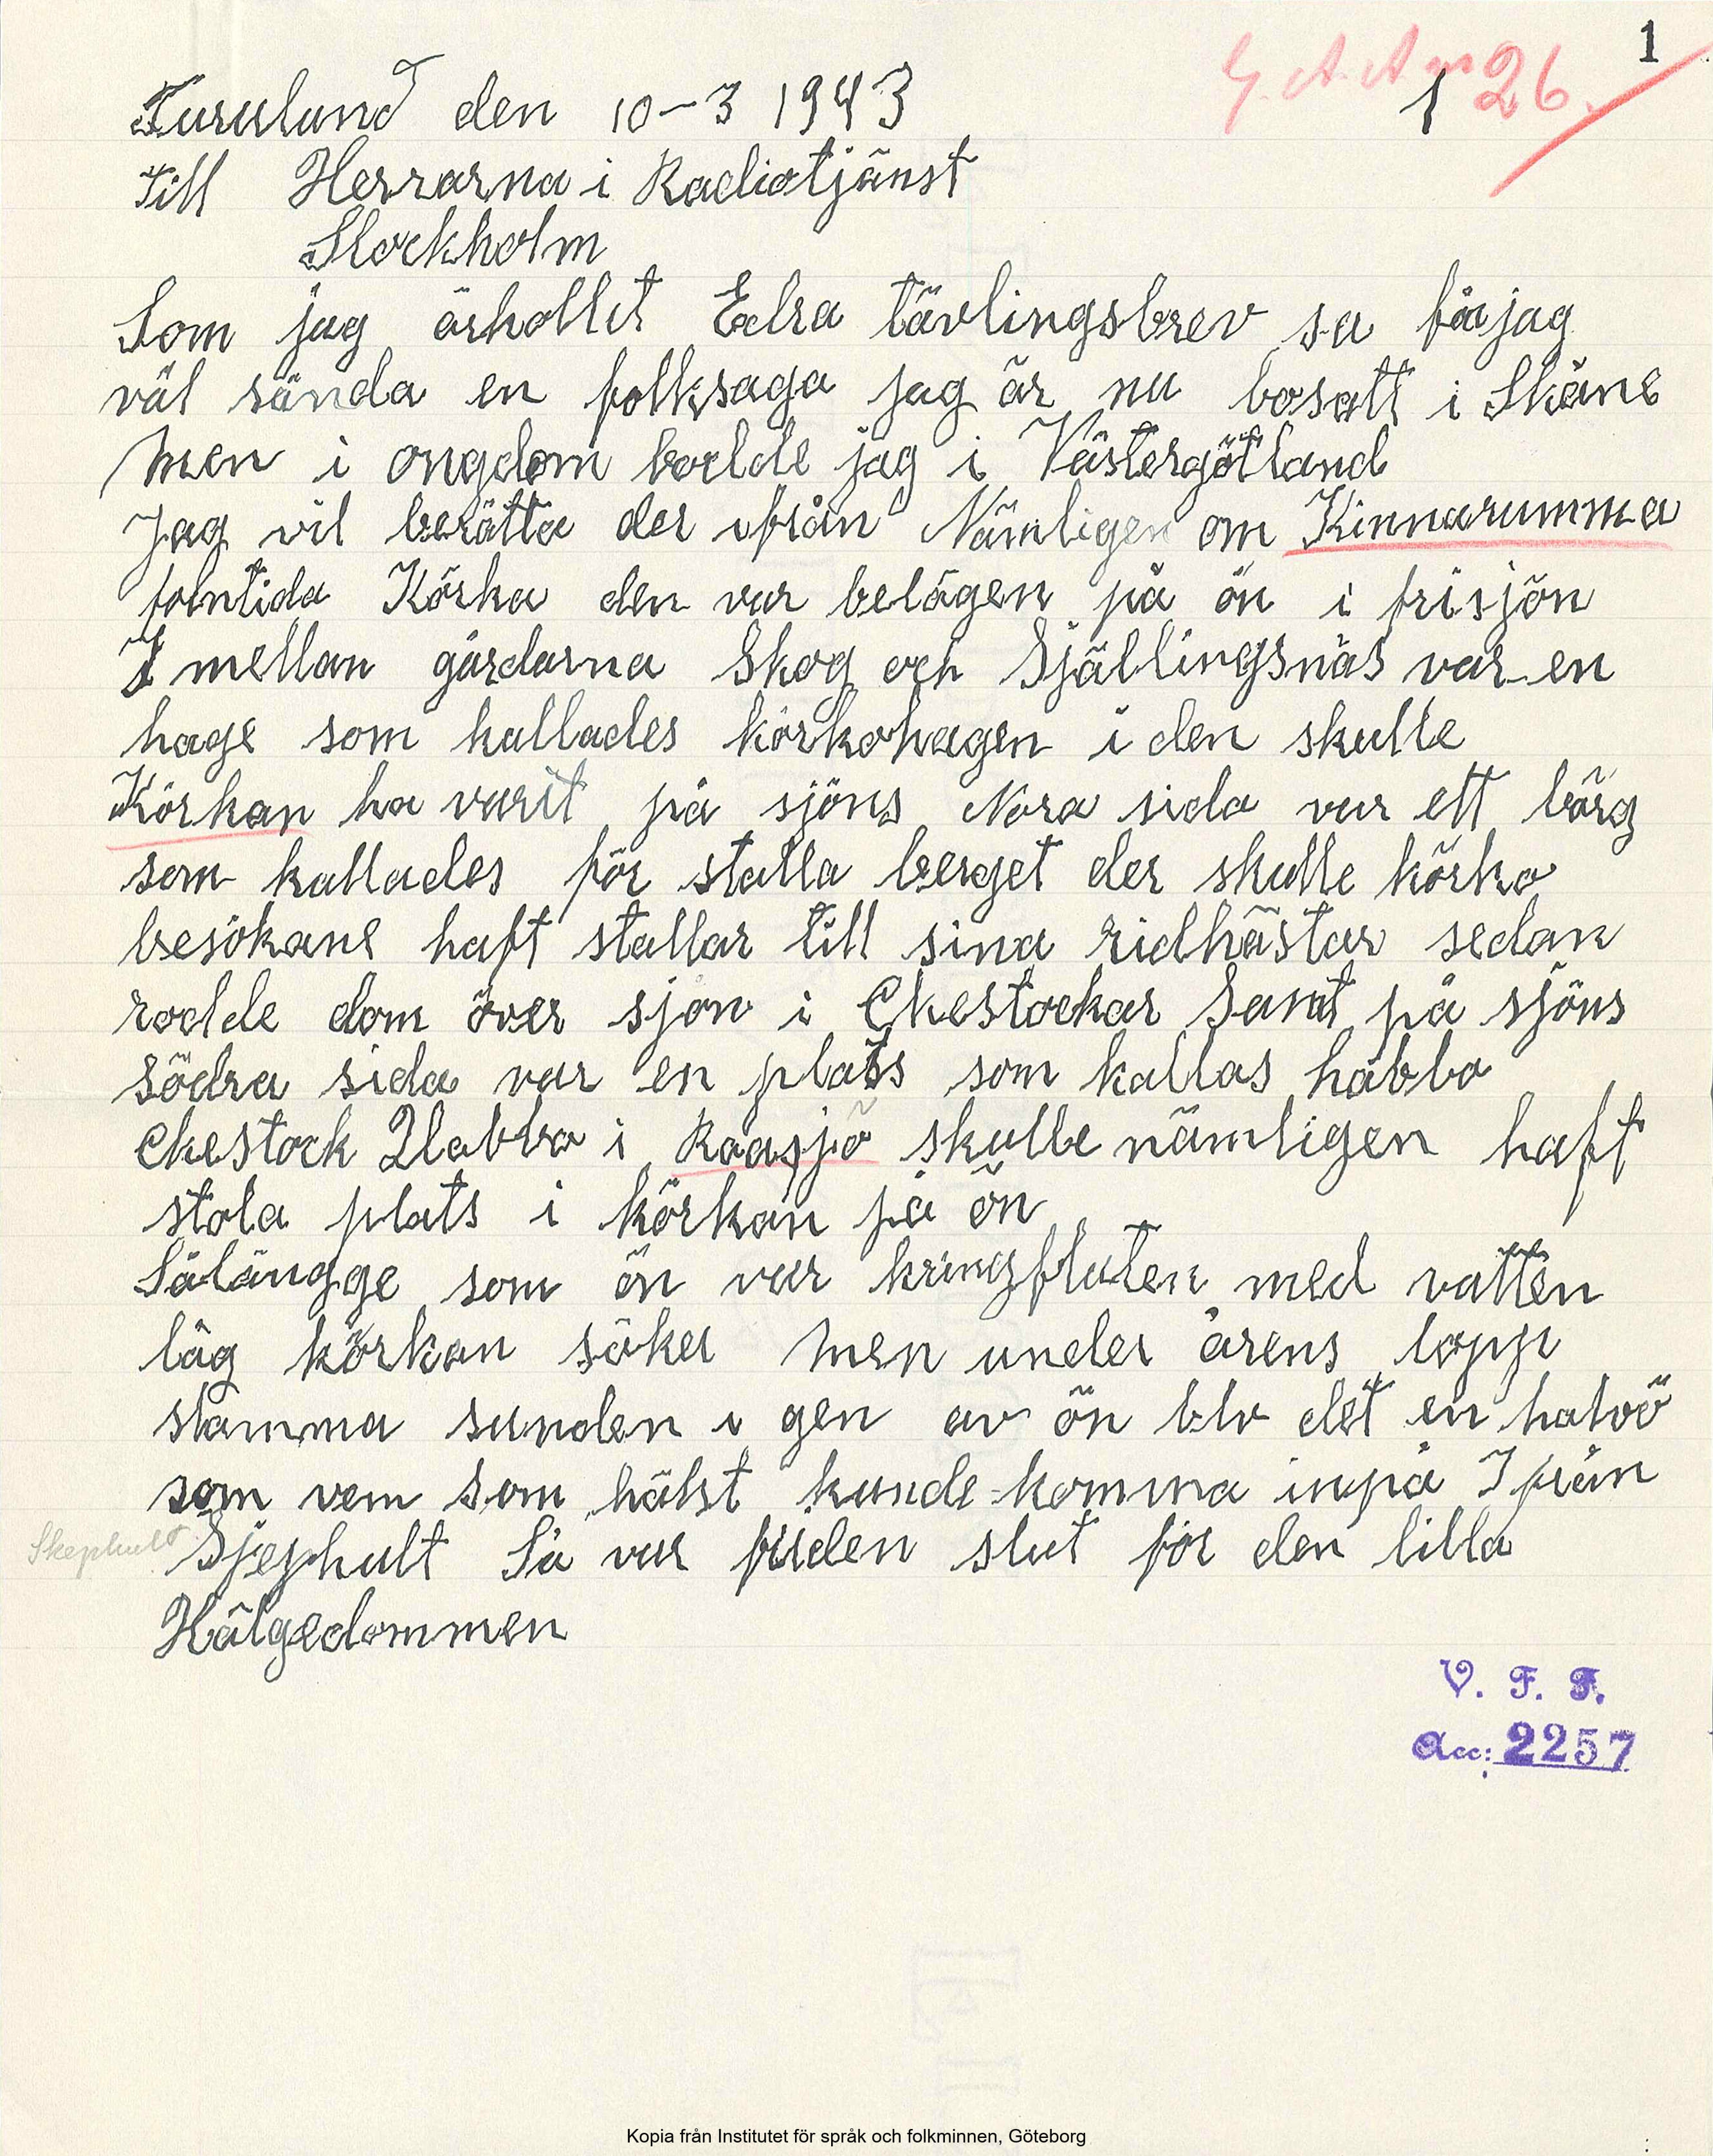 1
G. A. A. 26.
1
Furulund den 10-3 1943
Till Herrarna i Radiotjänst
Stockholm
Som jag ärhollit Edra tävlingsbrev sa får jag
väl sända en folksaga jag är nu bosatt i Skåne
Men i ongdom bodde jag i Västergötland
Jag vil berätta der ifrån Nämligen om Kinnarumma
forntida Körka den var belägen på ön i frisjön
I mellan gårdarna Skog och Själlingsnäs var en
hage som kallades körkohagen i den skulle
Körkan ha varit på sjöns Nora sida var ett bärg
som kallades för stalla berget der skulle körko
besökane haft stallar till sina ridhästar sedan
rodde dom över sjön i Ekestockar Samt på sjöns
södra sida var en plats som kallas häbbo
Ekestock Habbo i Roasjö skulle nämligen haft
stola plats i körkan på ön
Sålängge som ön var kringfluten med vatten
låg körkan säker Men under årens lopp
slamma sunden i gen av ön blv det en halvö
som vem som hälst kunde komma inpå Ifrån
Skephult Sjephult Så var friden slut för den lilla
Hälgedommen
V. F. F.
Acc: 2257
Kopia från Institutet för språk och folkminnen, Göteborg